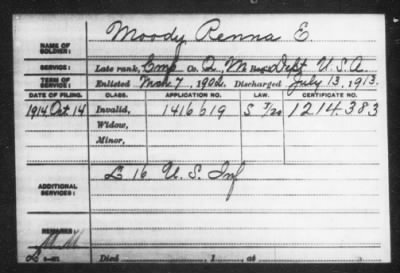 NAME OF SOLDIER: Moody Renna E
SERVICE: Late rank, Emp Co. Q. M. Reg't Dept U. S. A.
TERM OF SERVICE: Enlisted 7, 1902 Discharged July 13, 1913.
DATE OF FILING. CLASS. APPLICATION NO. LAW. CERTIFICATE NO.
1914 Oct. 14 Invalid, 1416619 S 1214383
Widow,
Minor,
ADDITIONAL SERVICES: L 16 U. S. Inf
REMARKS:
Died , 1 , at